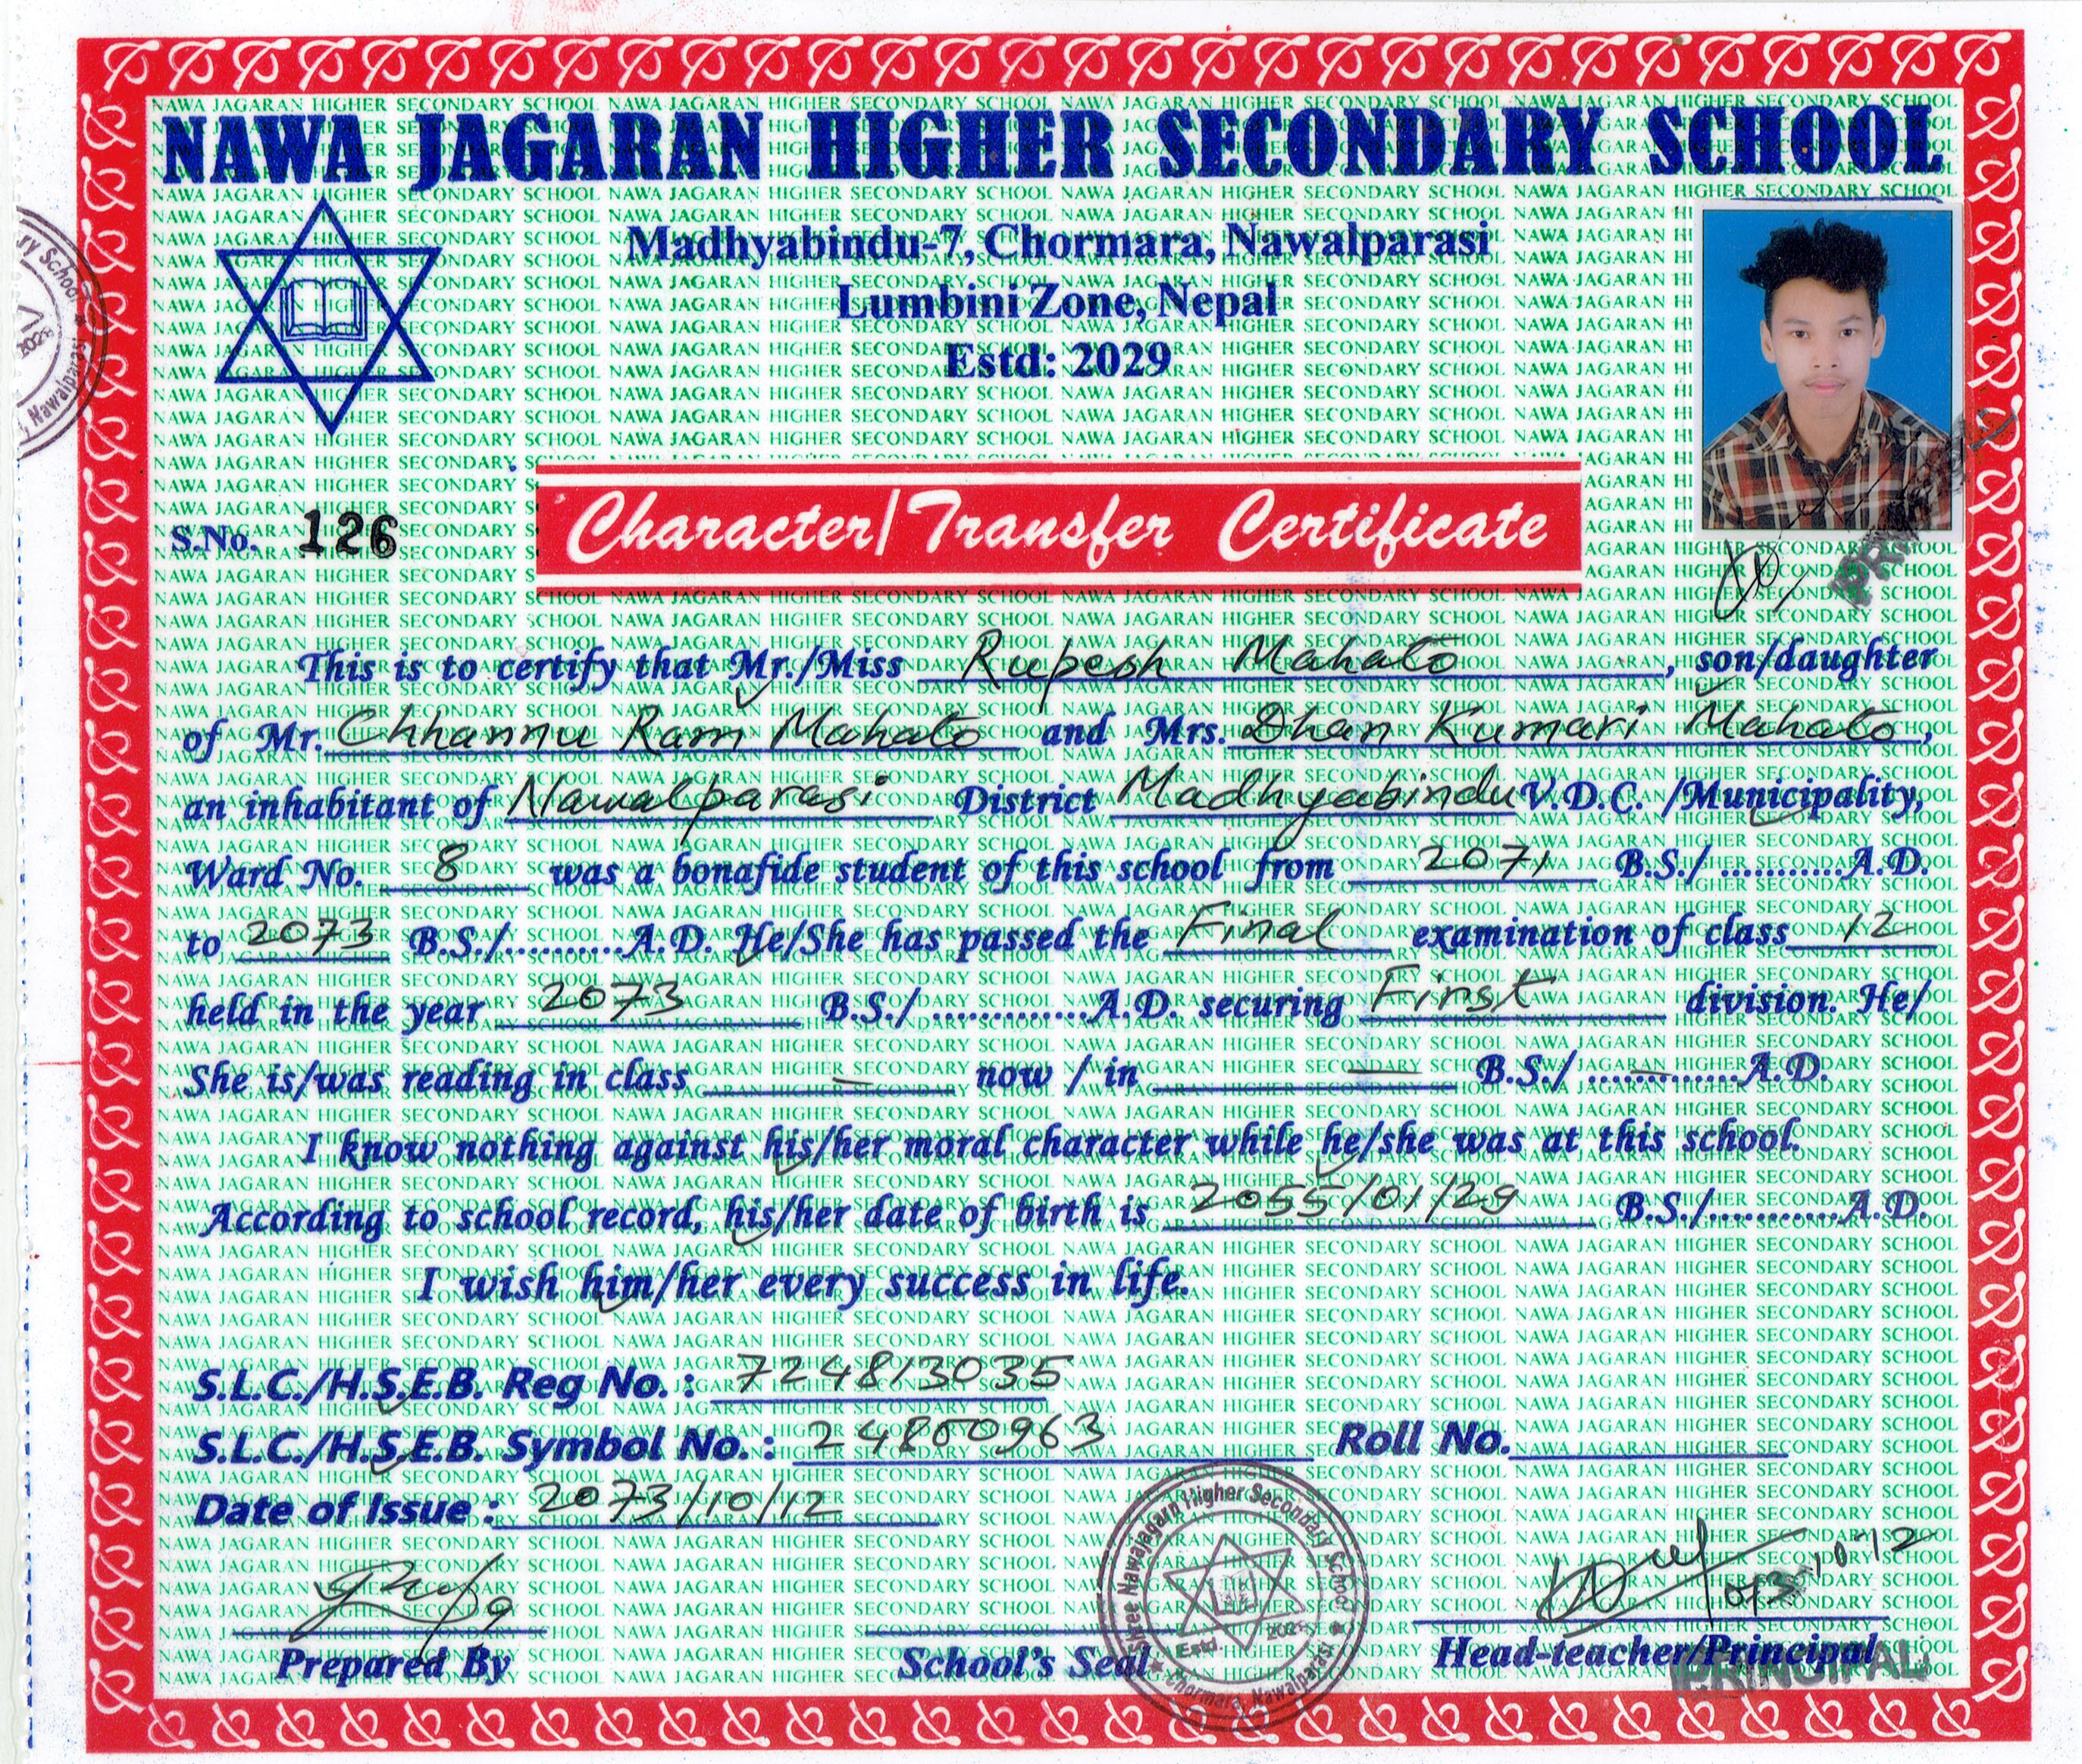 NAWA JAGARAN HIGHER SECONDARY SCHOOL
Madhyabindu-7, Chormara, Nawalparasi
Lumbini Zone, Nepal
Estd: 2029
S.No. 126
Character/Transfer Certificate
This is to certify that Mr./Miss Rupesh Mahato, son/daughter
of Mr. Chhannu Ram Mahato and Mrs. Dhan Kumari Mahato,
an inhabitant of Nawalparasi District Madhyabindu V.D.C. /Municipality,
Ward No. 8 was a bonafide student of this school from 2071 B.S./ ...........A.D.
to 2073 B.S./...........A.D. He/She has passed the Final examination of class 12
held in the year 2073 B.S./ ..............A.D. securing First division. He/
She is/was reading in class — now / in — B.S./ ..............A.D.
I know nothing against his/her moral character while he/she was at this school.
According to school record, his/her date of birth is 2055/01/29 B.S./............A.D.
I wish him/her every success in life.
S.L.C./H.S.E.B. Reg No. : 724813035
S.L.C./H.S.E.B. Symbol No. : 24850963 Roll No.
Date of Issue : 2073/10/12
Prepared By School's Seal Head-teacher/Principal
PRINCIPAL